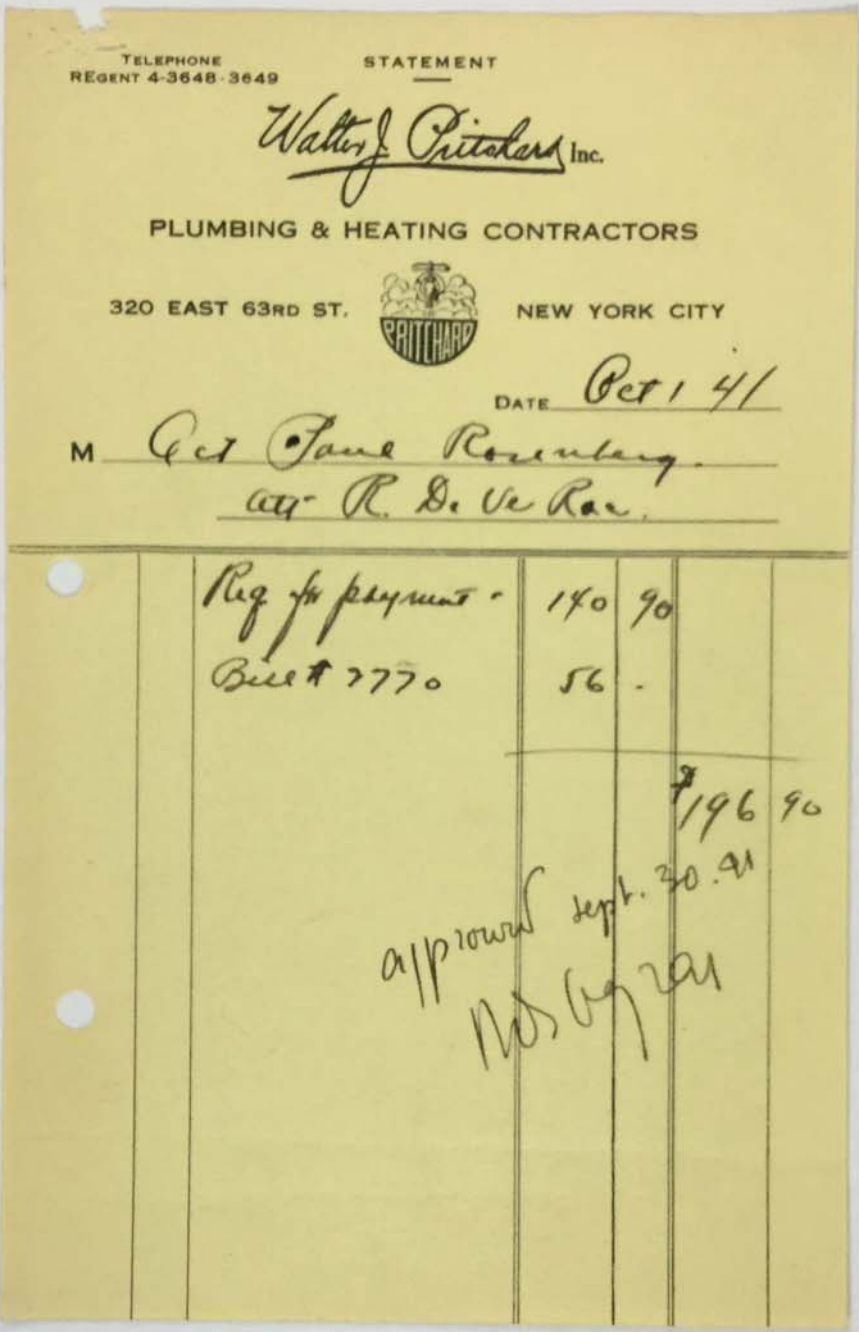 TELEPHONE
REGENT 4-3648-3649
STATEMENT
Walter J. Pritchard Inc.
PLUMBING & HEATING CONTRACTORS
320 EAST 63RD ST.
PRITCHARD
NEW YORK CITY
DATE Oct 1 41
M Act Paul Rosenberg.
att- R. De Ve Rac.
Req for payment - 140 90
Bill # 7770 56 -
$196 90
approved sept. 30. 41